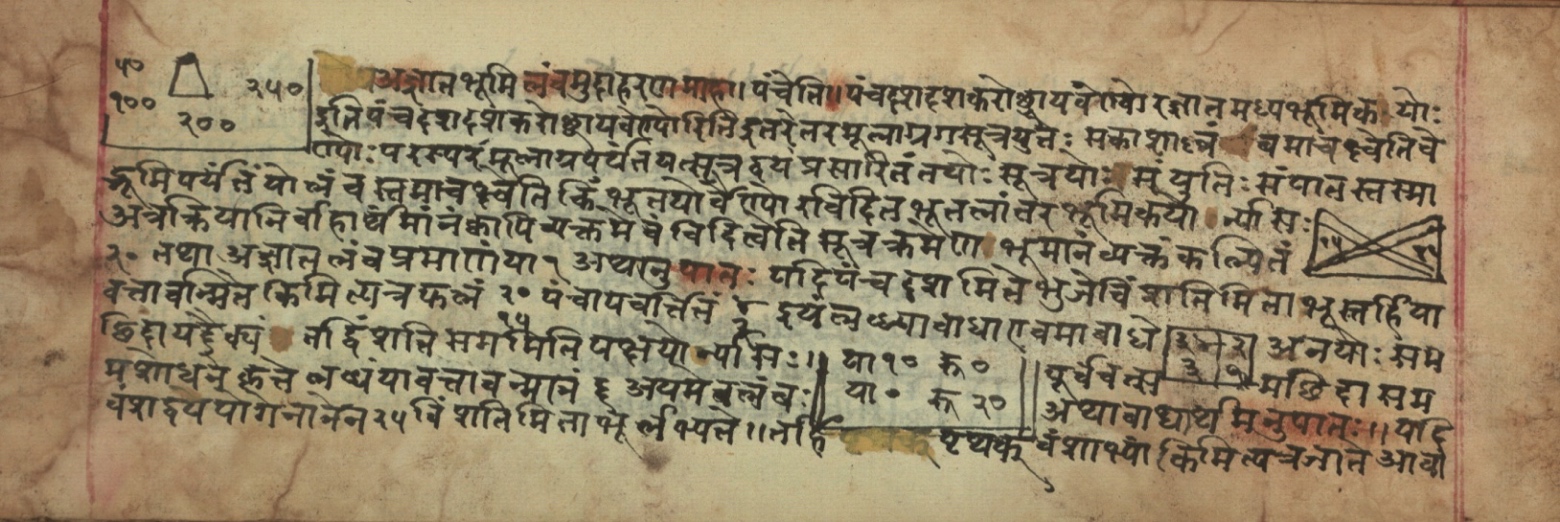 ५० २५० अज्ञातभूमिलंबमुदाहरणमाह॥ पंचेति॥ पंचदशदशकरोछ्रायवंशयोरज्ञातमध्यभूमिकयोः
१०० २०० इतिपंचदशदशकरोछ्रायवेण्वोरितिइतरेतरमूलाग्रगसूत्रयुतेः सकाशाल्लंबमाचक्ष्वेतिवे
ण्वोः परस्परंमूलाग्रपर्यंतंयत्सूत्रद्वयंप्रसारितंतयोः सूत्रयोः संयुतिः संपातस्तस्मा
द्भूमिपर्यंतंयोलंबस्तमाचक्ष्वेति किंभूतयोर्वेण्वोरविदितभूतलांतरभूमिकयोः न्यासः
अत्रक्रियानिर्वाहार्थंमानंक्वापिव्यक्तमेवंविदित्वेति सूत्रक्रमेण भूमानंव्यक्तंकल्पितं
२० तथाअज्ञातलंबप्रमाणंया १ अथानुपातः यदिपंचदशमितेभुजेविंशतिमिताभूस्तर्हिया
वत्तावन्मितेकिमित्यत्रफलं २० १५ पंचापवर्त्तितं ४ ३ इयंलघ्व्याबाधाएवमाबाधे अनयोः सम
छिदायदैक्यं तद्विंशतिसममितिपक्षयोर्न्यासः॥ या १० रू ० पूर्ववत्स ३ १ मछिदासम
मशोधनेकृतेलब्धंयावत्तावन्मानं ६ अयमेवलंबः या ० रू २० अथाबाधार्थमनुपातः॥ यदि
वंशद्वययोगेनानेन २५ विंशतिमिताभूर्लभ्यते॥ तर्हि पृथक् वंशाभ्यां किमित्यत्रजाते आबा